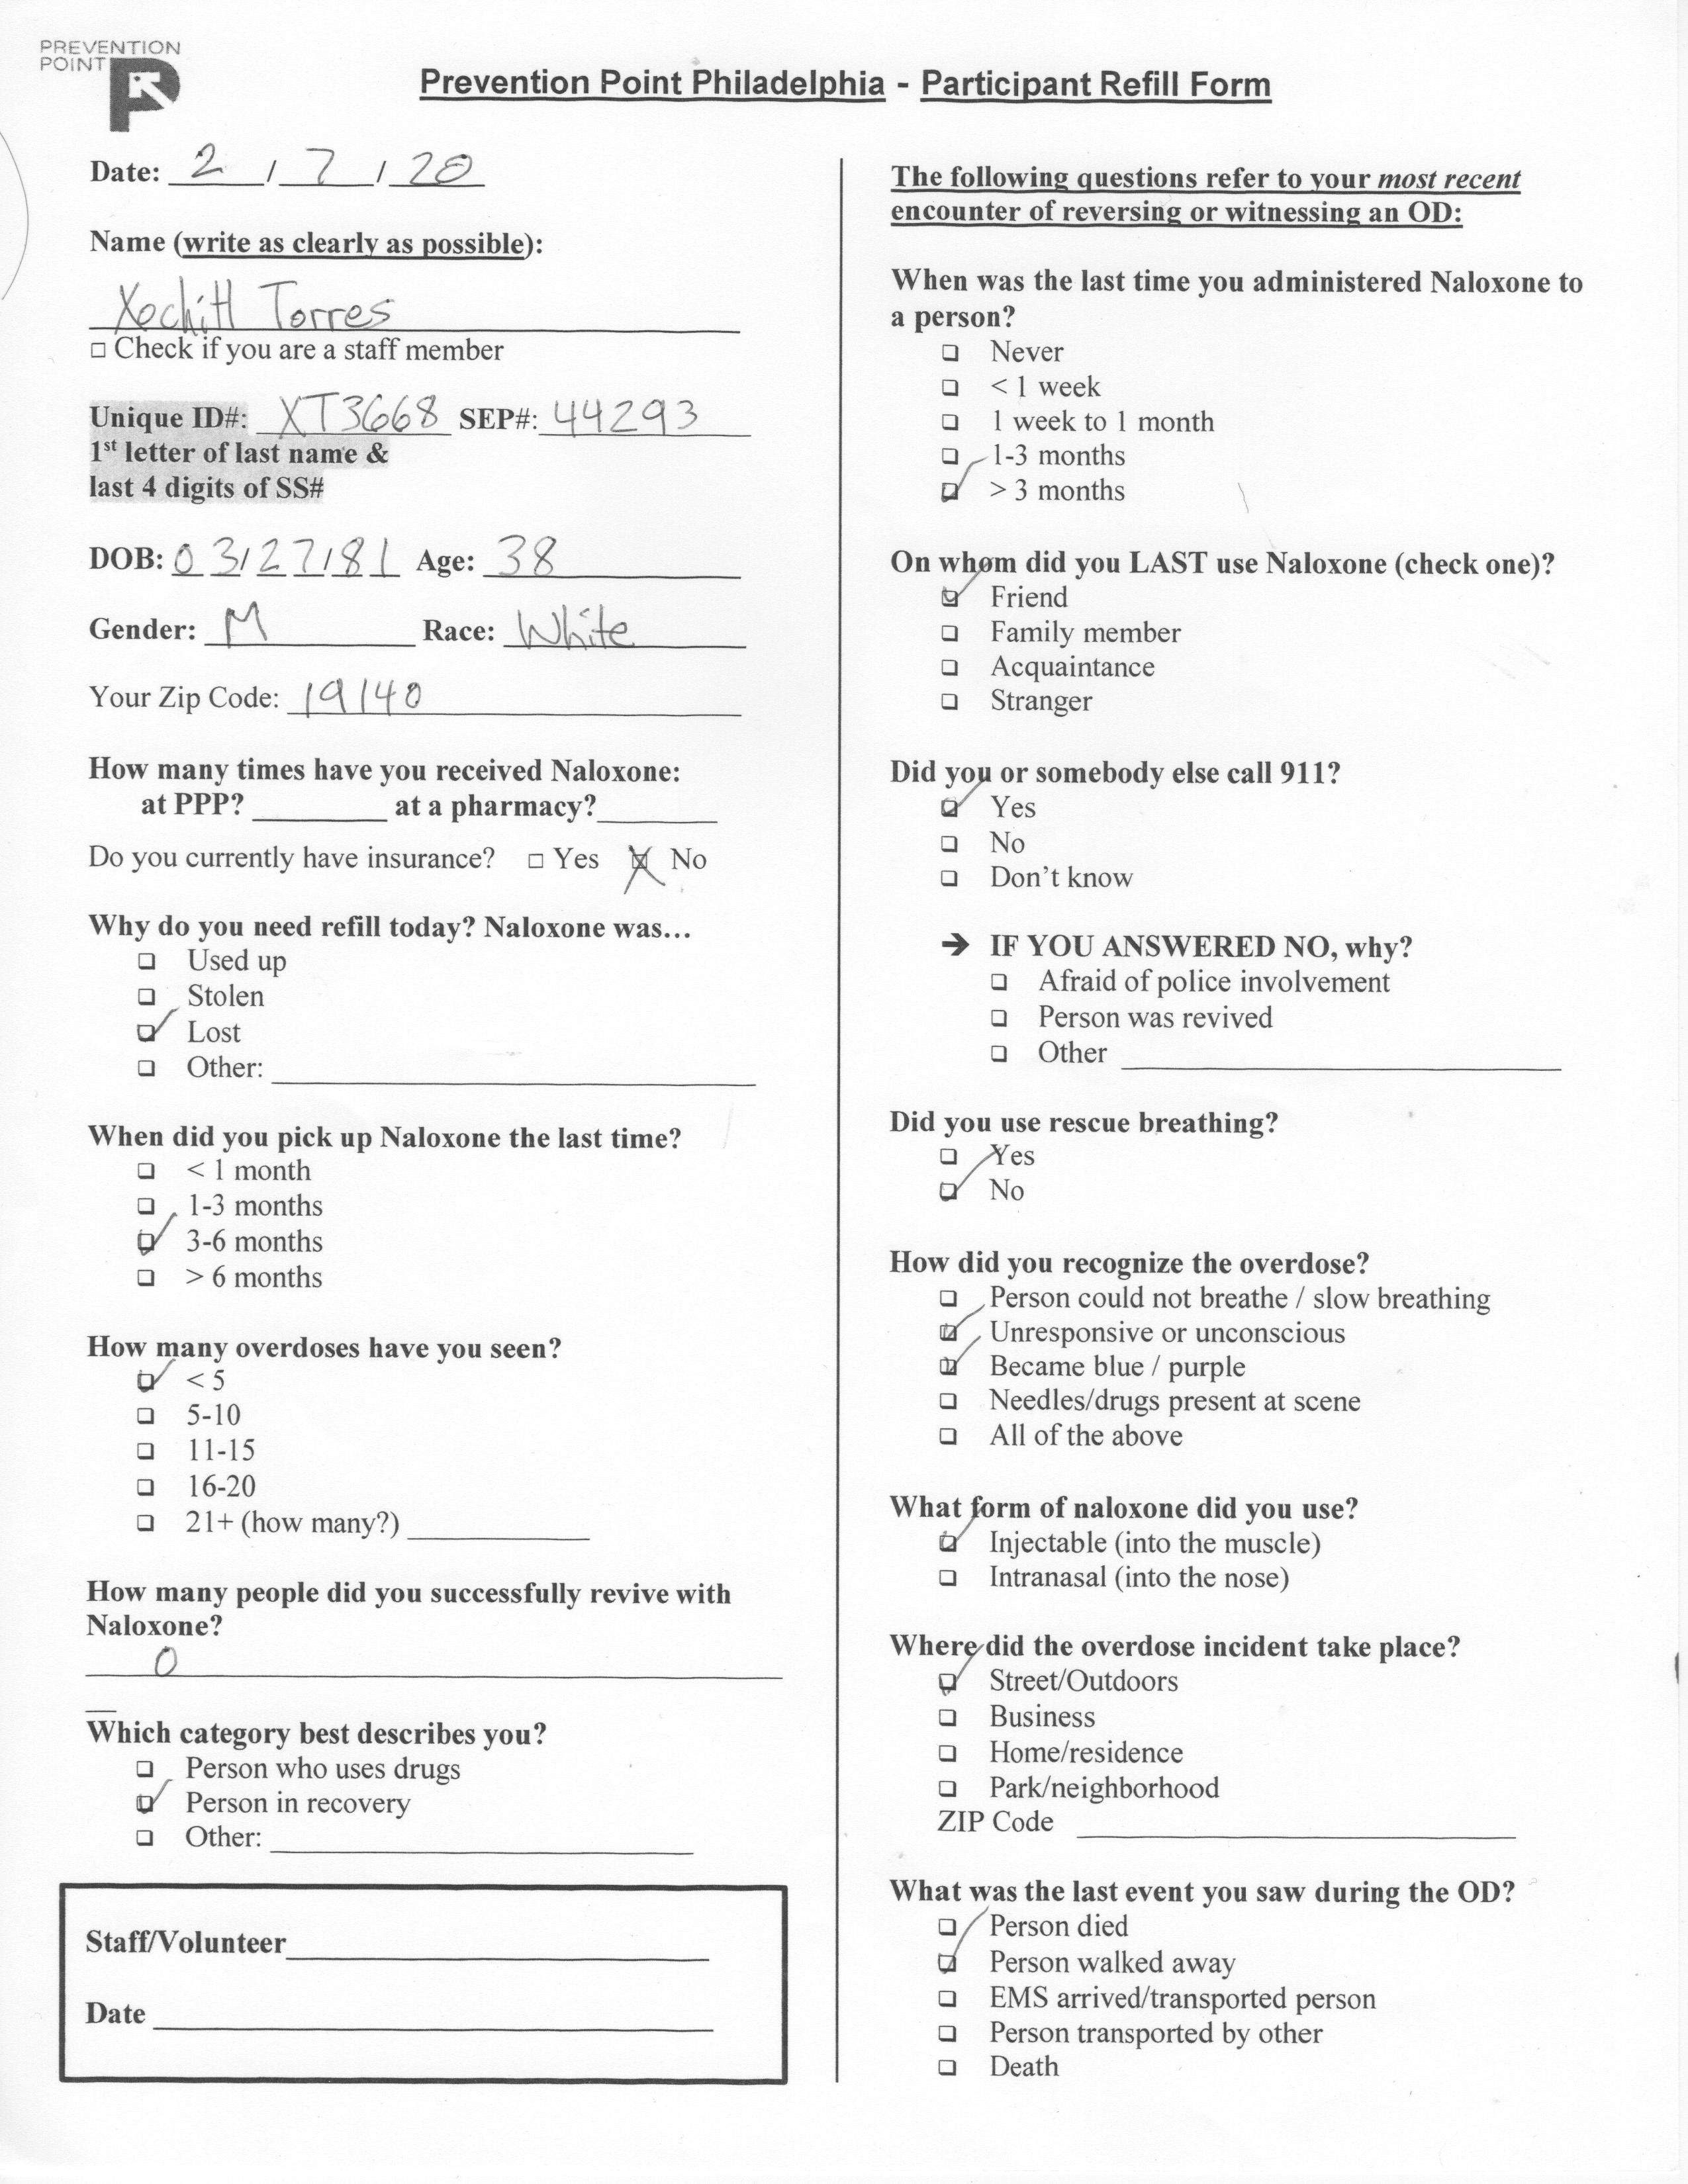 PREVENTION
POINT
Prevention Point Philadelphia - Participant Refill Form
Date: 2 / 7 / 20
Name (write as clearly as possible):
Xochitl Torres
□ Check if you are a staff member
Unique ID#: XT3668 SEP#: 44293
1st letter of last name &
last 4 digits of SS#
DOB: 03/27/81 Age: 38
Gender: M Race: White
Your Zip Code: 19140
How many times have you received Naloxone:
at PPP? ________ at a pharmacy? ________
Do you currently have insurance? □ Yes ☒ No
Why do you need refill today? Naloxone was...
❑ Used up
❑ Stolen
☑ Lost
❑ Other: ________
When did you pick up Naloxone the last time?
❑ < 1 month
❑ 1-3 months
☑ 3-6 months
❑ > 6 months
How many overdoses have you seen?
☑ < 5
❑ 5-10
❑ 11-15
❑ 16-20
❑ 21+ (how many?) ________
How many people did you successfully revive with
Naloxone?
0
Which category best describes you?
❑ Person who uses drugs
☑ Person in recovery
❑ Other: ________
Staff/Volunteer ________
Date ________
The following questions refer to your most recent
encounter of reversing or witnessing an OD:
When was the last time you administered Naloxone to
a person?
❑ Never
❑ < 1 week
❑ 1 week to 1 month
❑ 1-3 months
☑ > 3 months
On whom did you LAST use Naloxone (check one)?
☑ Friend
❑ Family member
❑ Acquaintance
❑ Stranger
Did you or somebody else call 911?
☑ Yes
❑ No
❑ Don't know
➔ IF YOU ANSWERED NO, why?
❑ Afraid of police involvement
❑ Person was revived
❑ Other ________
Did you use rescue breathing?
❑ Yes
☑ No
How did you recognize the overdose?
❑ Person could not breathe / slow breathing
☑ Unresponsive or unconscious
☑ Became blue / purple
❑ Needles/drugs present at scene
❑ All of the above
What form of naloxone did you use?
☑ Injectable (into the muscle)
❑ Intranasal (into the nose)
Where did the overdose incident take place?
☑ Street/Outdoors
❑ Business
❑ Home/residence
❑ Park/neighborhood
ZIP Code ________
What was the last event you saw during the OD?
❑ Person died
☑ Person walked away
❑ EMS arrived/transported person
❑ Person transported by other
❑ Death